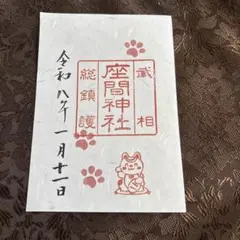 武相
座間神社
総鎮護
令和八年一月十一日